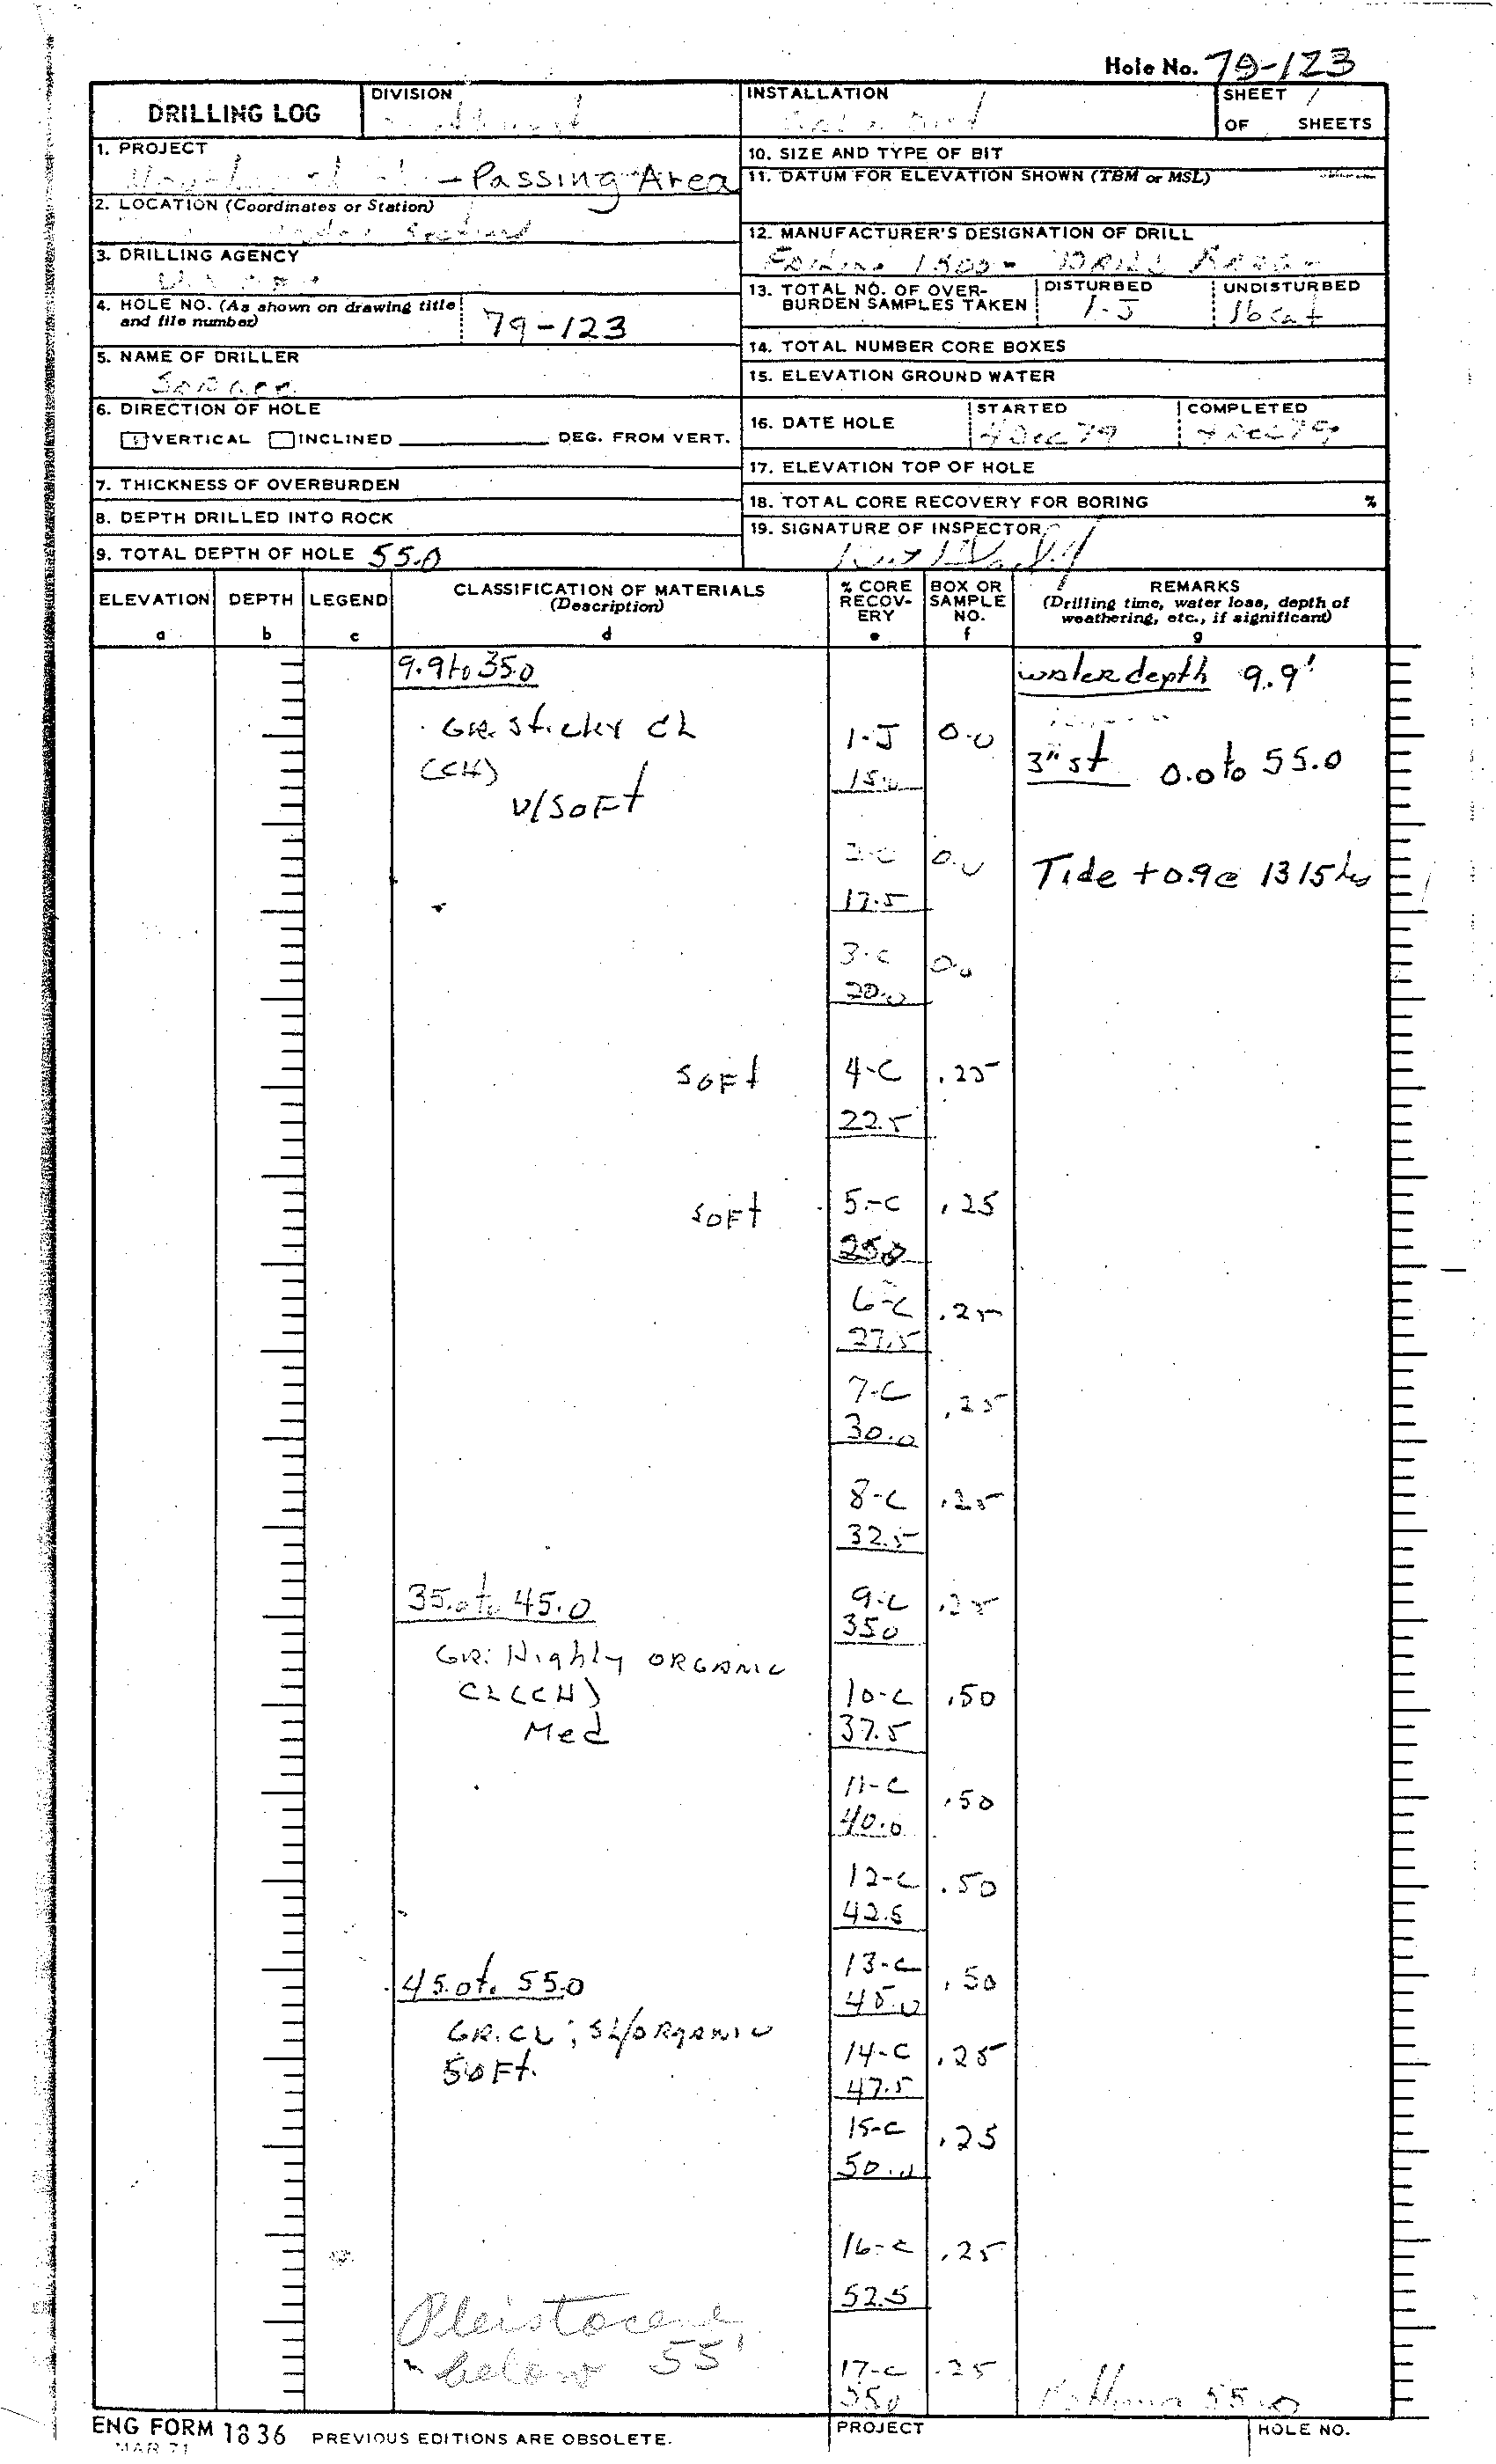 Hole No. 79-123
DRILLING LOG
DIVISION
INSTALLATION
SHEET 1
OF SHEETS
1. PROJECT
- Passing Area
2. LOCATION (Coordinates or Station)
3. DRILLING AGENCY
4. HOLE NO. (As shown on drawing title
and file number)
79-123
5. NAME OF DRILLER
6. DIRECTION OF HOLE
VERTICAL INCLINED DEG. FROM VERT.
7. THICKNESS OF OVERBURDEN
8. DEPTH DRILLED INTO ROCK
9. TOTAL DEPTH OF HOLE 55.0
10. SIZE AND TYPE OF BIT
11. DATUM FOR ELEVATION SHOWN (TBM or MSL)
12. MANUFACTURER'S DESIGNATION OF DRILL
1500 -
13. TOTAL NO. OF OVER-
BURDEN SAMPLES TAKEN
DISTURBED
1-J
UNDISTURBED
16 cat
14. TOTAL NUMBER CORE BOXES
15. ELEVATION GROUND WATER
16. DATE HOLE
STARTED
4 Dec 79
COMPLETED
4 Dec 79
17. ELEVATION TOP OF HOLE
18. TOTAL CORE RECOVERY FOR BORING %
19. SIGNATURE OF INSPECTOR
ELEVATION
a
DEPTH
b
LEGEND
c
CLASSIFICATION OF MATERIALS
(Description)
d
% CORE
RECOV-
ERY
e
BOX OR
SAMPLE
NO.
f
REMARKS
(Drilling time, water loss, depth of
weathering, etc., if significant)
g
9.9 to 35.0
water depth 9.9'
GR. sticky CL
1-J 0.0
(CH)
3" st 0.0 to 55.0
15.0
V/SOFt
2-C 0.0
Tide +0.9 @ 1315 hrs
17.5
3-C 0.0
20.0
SOFt 4-C .25
22.5
SOFt 5-C .25
25.0
6-C .25
27.5
7-C .25
30.0
8-C .25
32.5
35.0 to 45.0
9-C .25
35.0
GR. Highly ORGANIC
CL (CH)
10-C .50
Med
37.5
11-C .50
40.0
12-C .50
42.5
13-C .50
45.0 to 55.0
45.0
GR. CL; SL/ORGANIC
14-C .25
SOFt.
47.5
15-C .25
50.0
16-C .25
52.5
Pleistocene
below 55'
17-C .25
55.0
Bottom 55.0
ENG FORM 1836
MAR 71
PREVIOUS EDITIONS ARE OBSOLETE.
PROJECT
HOLE NO.